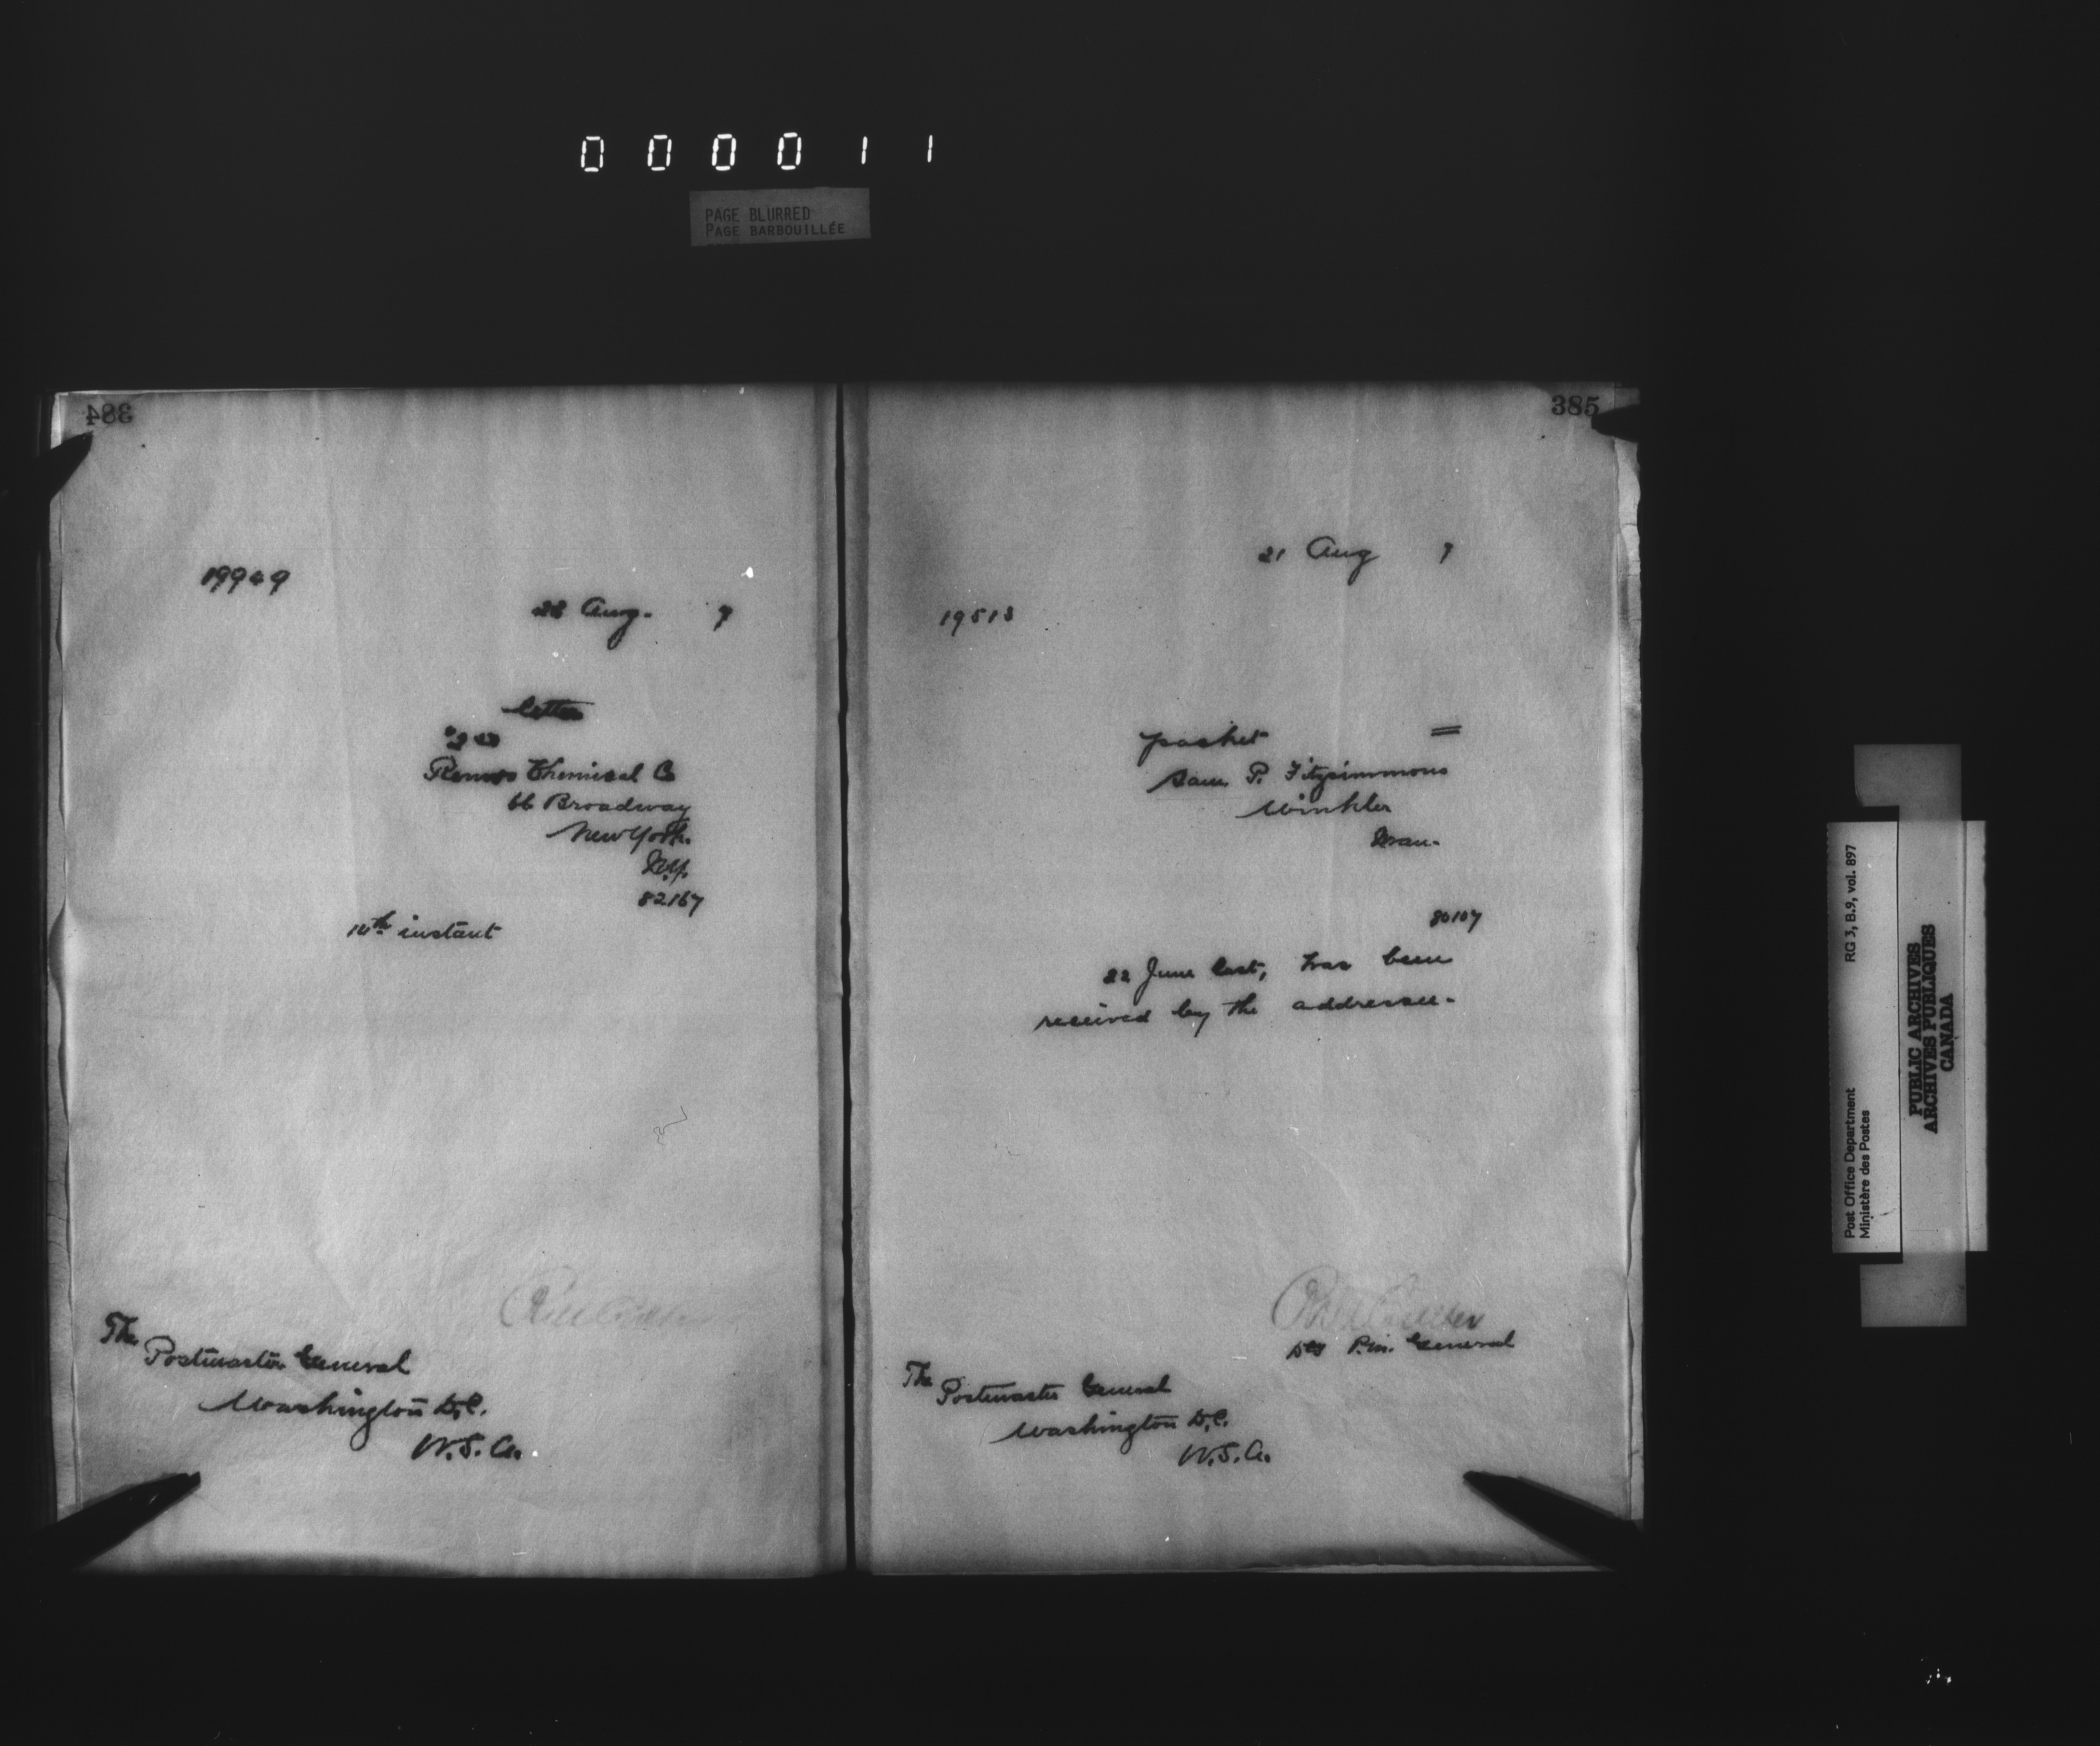 000011
PAGE BLURRED
PAGE BARBOUILLÉE
384
19949
22 Aug. 7
letter
Chemical Co
66 Broadway
New York.
N.Y.
82167
instant
The
Postmaster General
Washington D.C.
U.S.A.
385
21 Aug 7
19513
packet =
Sam. P. Fitzsimmons
Winkler
Man.
80107
22 June last, has been
received by the addressee.
Dy P.M. General
The
Postmaster General
Washington D.C.
U.S.A.
Post Office Department RG 3, B.9, vol. 897
Ministère des Postes
PUBLIC ARCHIVES
ARCHIVES PUBLIQUES
CANADA